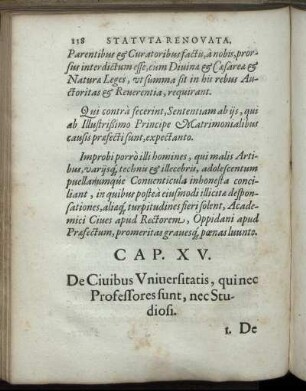 118 STATVTA RENOVATA.
Parentibus & Curatoribus factis, à nobis, pror-
sus interdictum esse, cum Divinæ & Cæsareæ &
Naturæ Leges, vt summa sit in his rebus Au-
ctoritas & Reverentia, requirant.
Qui contrà fecerint, Sententiam ab ijs, qui
ab Illustrißimo Principe Matrimonialibus
causis præfecti sunt, expectanto.
Improbi porrò illi homines, qui malis Arti-
bus, varijsq́, technis & illecebris, adolescentum
puellarumque Conventicula inhonesta conci-
liant, in quibus posteà eiusmodi illicitæ despon-
sationes, aliæq́, turpitudines fieri solent, Acade-
mici Cives apud Rectorem, Oppidani apud
Præfectum, promeritas gravesq́, pœnas luunto.
CAP. XV.
De Ciuibus Vniuersitatis, qui nec
Professores sunt, nec Stu-
diosi.
1. De